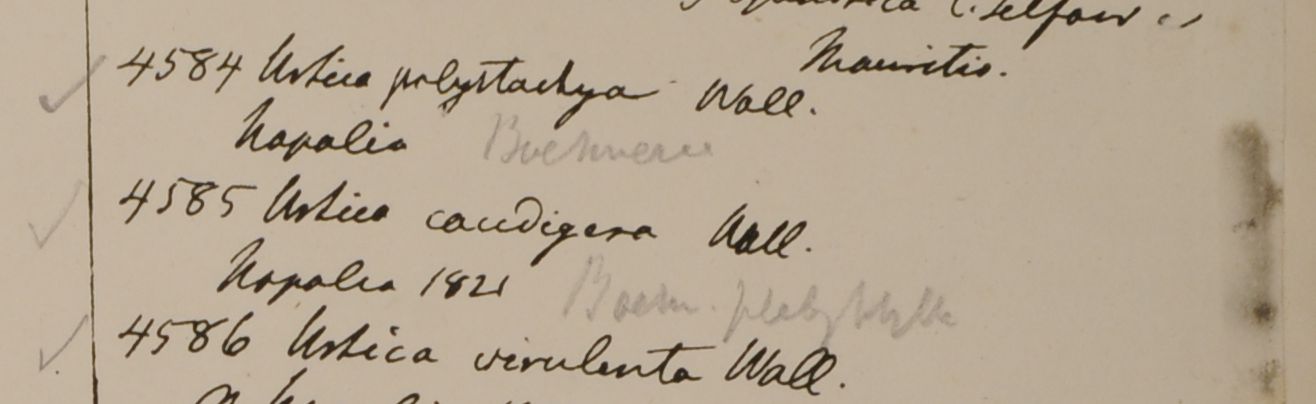 C. Telfair
Mauritio.
4584 Urtica polystachya Wall.
Napalia Boehmeria
4585 Urtica caudigera Wall.
Napalia 1821 Boehm. platyphylla
4586 Urtica virulenta Wall.